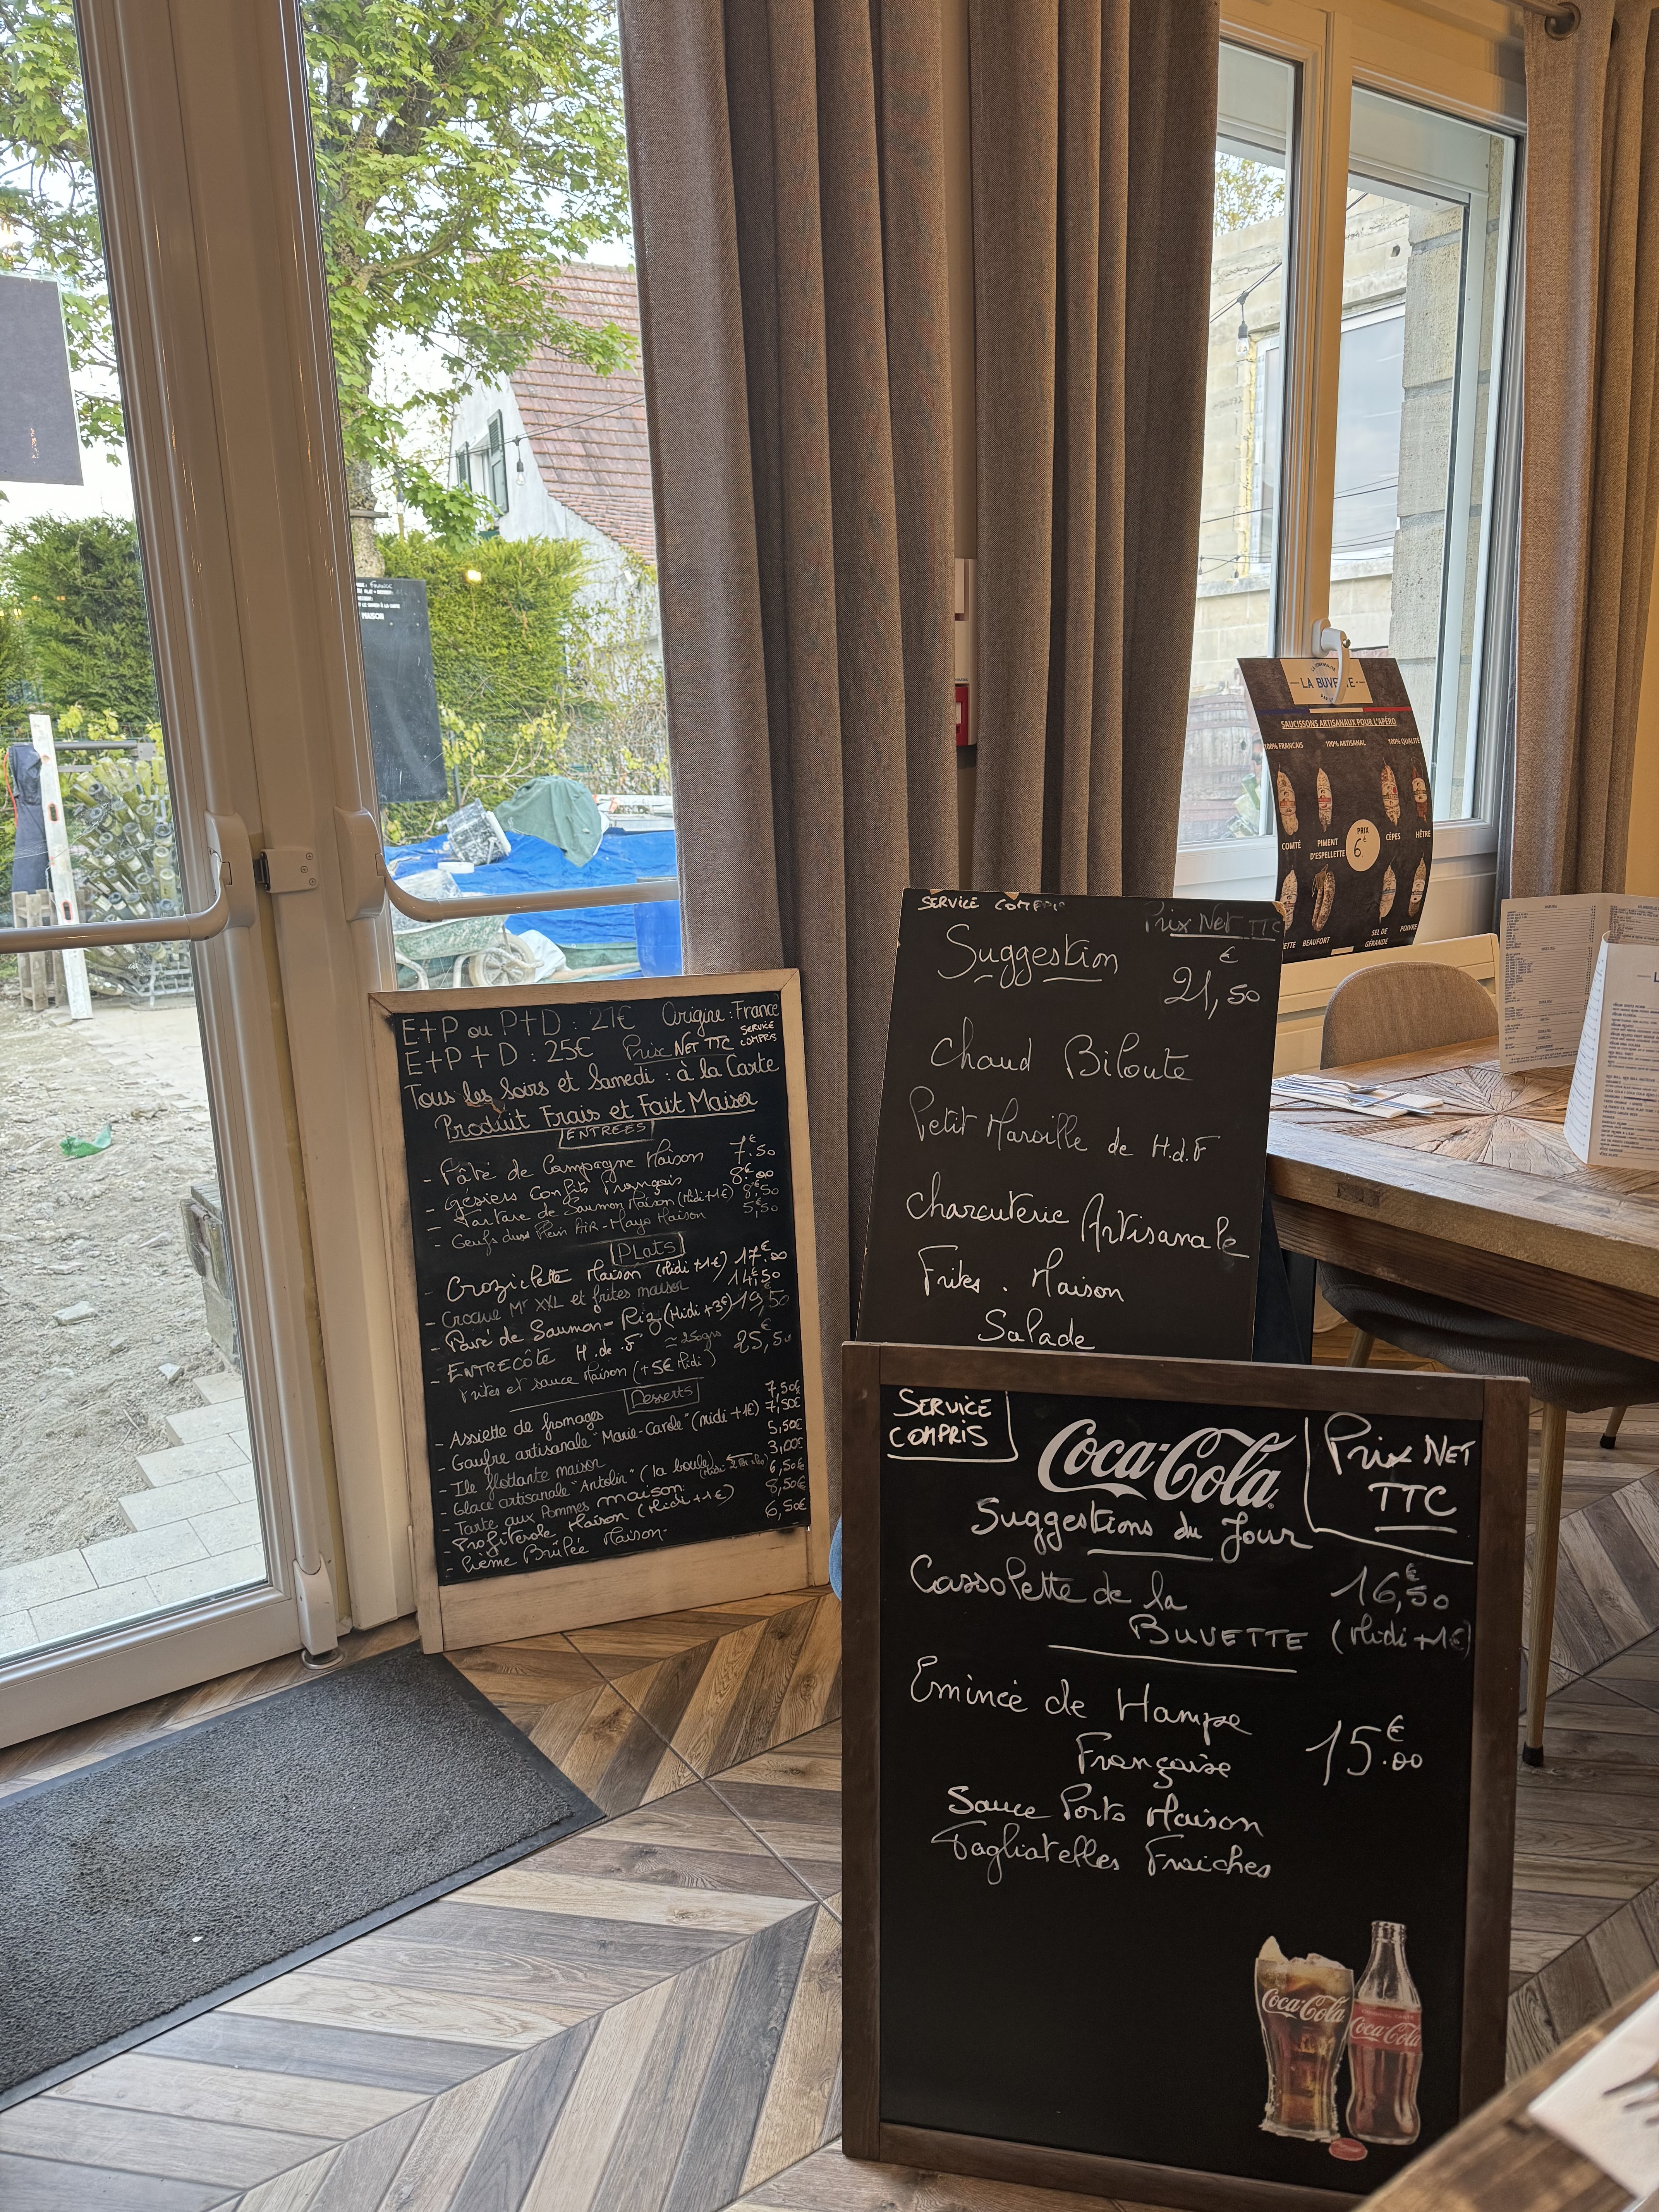 E+P ou P+D : 21€ Origine : France
E+P+D : 25€ Prix NET TTC SERVICE COMPRIS
Tous les Soirs et Samedi : à la Carte
Produit Frais et Fait Maison
ENTREES
- Pâté de Campagne Maison 7€.50
- Gésiers Confits Français 8€.00
- Tartare de Saumon Maison (Midi+1€) 8€,50
- Oeufs durs Plein AiR - Mayo Maison 5,50
PLats
- Croziflette Maison (Midi +1€) 17€.00
- Croque Mr XXL et frites maison 14€.50
- Pavé de Saumon - Riz (Midi +3€) 19,50
- ENTRECÔTE H.de.F ≃ 250grs 25€,50
frites et sauce Maison (+5€ Midi)
Desserts
- Assiette de fromages 7,50€
- Gaufre artisanale "Marie-Carole" (midi +1€) 7,50€
- Ile flottante maison 5,50€
- Glace artisanale "Antolin" (la boule) 3,00€
- Tarte aux Pommes maison 6,50€
- Profiterole Maison (Midi +1€) 8,50€
- Crème Brûlée Maison 6,50€
SERVICE COMPRIS
Prix Net TTC
Suggestion 21€,50
Chaud Biloute
Petit Maroille de H.d.F
Charcuterie Artisanale
Frites . Maison
Salade
SERVICE COMPRIS
Coca-Cola
Prix NET TTC
Suggestions du Jour
Cassolette de la 16€,50
BUVETTE (Midi +1€)
Emincé de Hampe
Française 15€.00
Sauce Porto Maison
Tagliatelles Fraiches
Coca-Cola
Coca-Cola
LA BUVETTE
SAUCISSONS ARTISANAUX POUR L'APÉRO
100% FRANCAIS 100% ARTISANAL 100% QUALITÉ
COMTÉ
PIMENT D'ESPELLETTE
PRIX 6€
CÈPES
HÊTRE
BEAUFORT
SEL DE GÉRANDE
POIVRE
FRANCE
MAISON